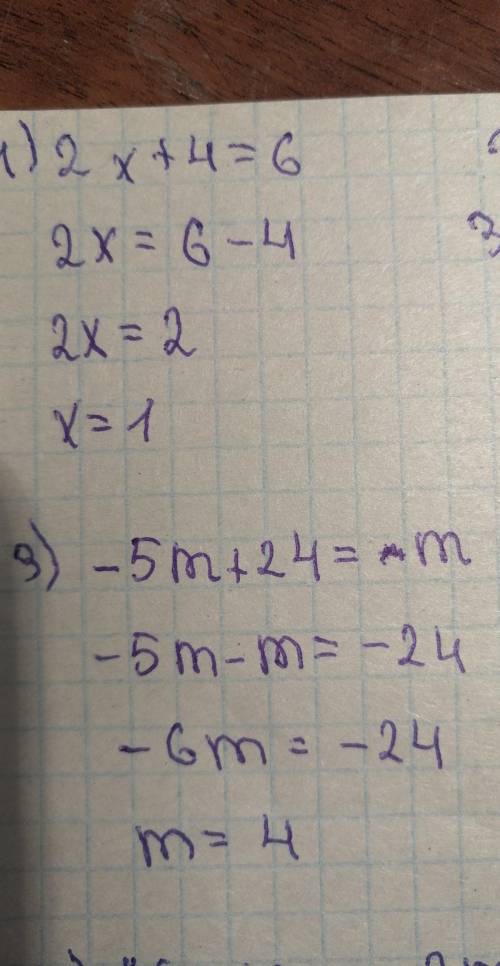 1) 2x+4=6
2x=6-4
2x=2
x=1
9) -5m+24= m
-5m-m=-24
-6m=-24
m=4